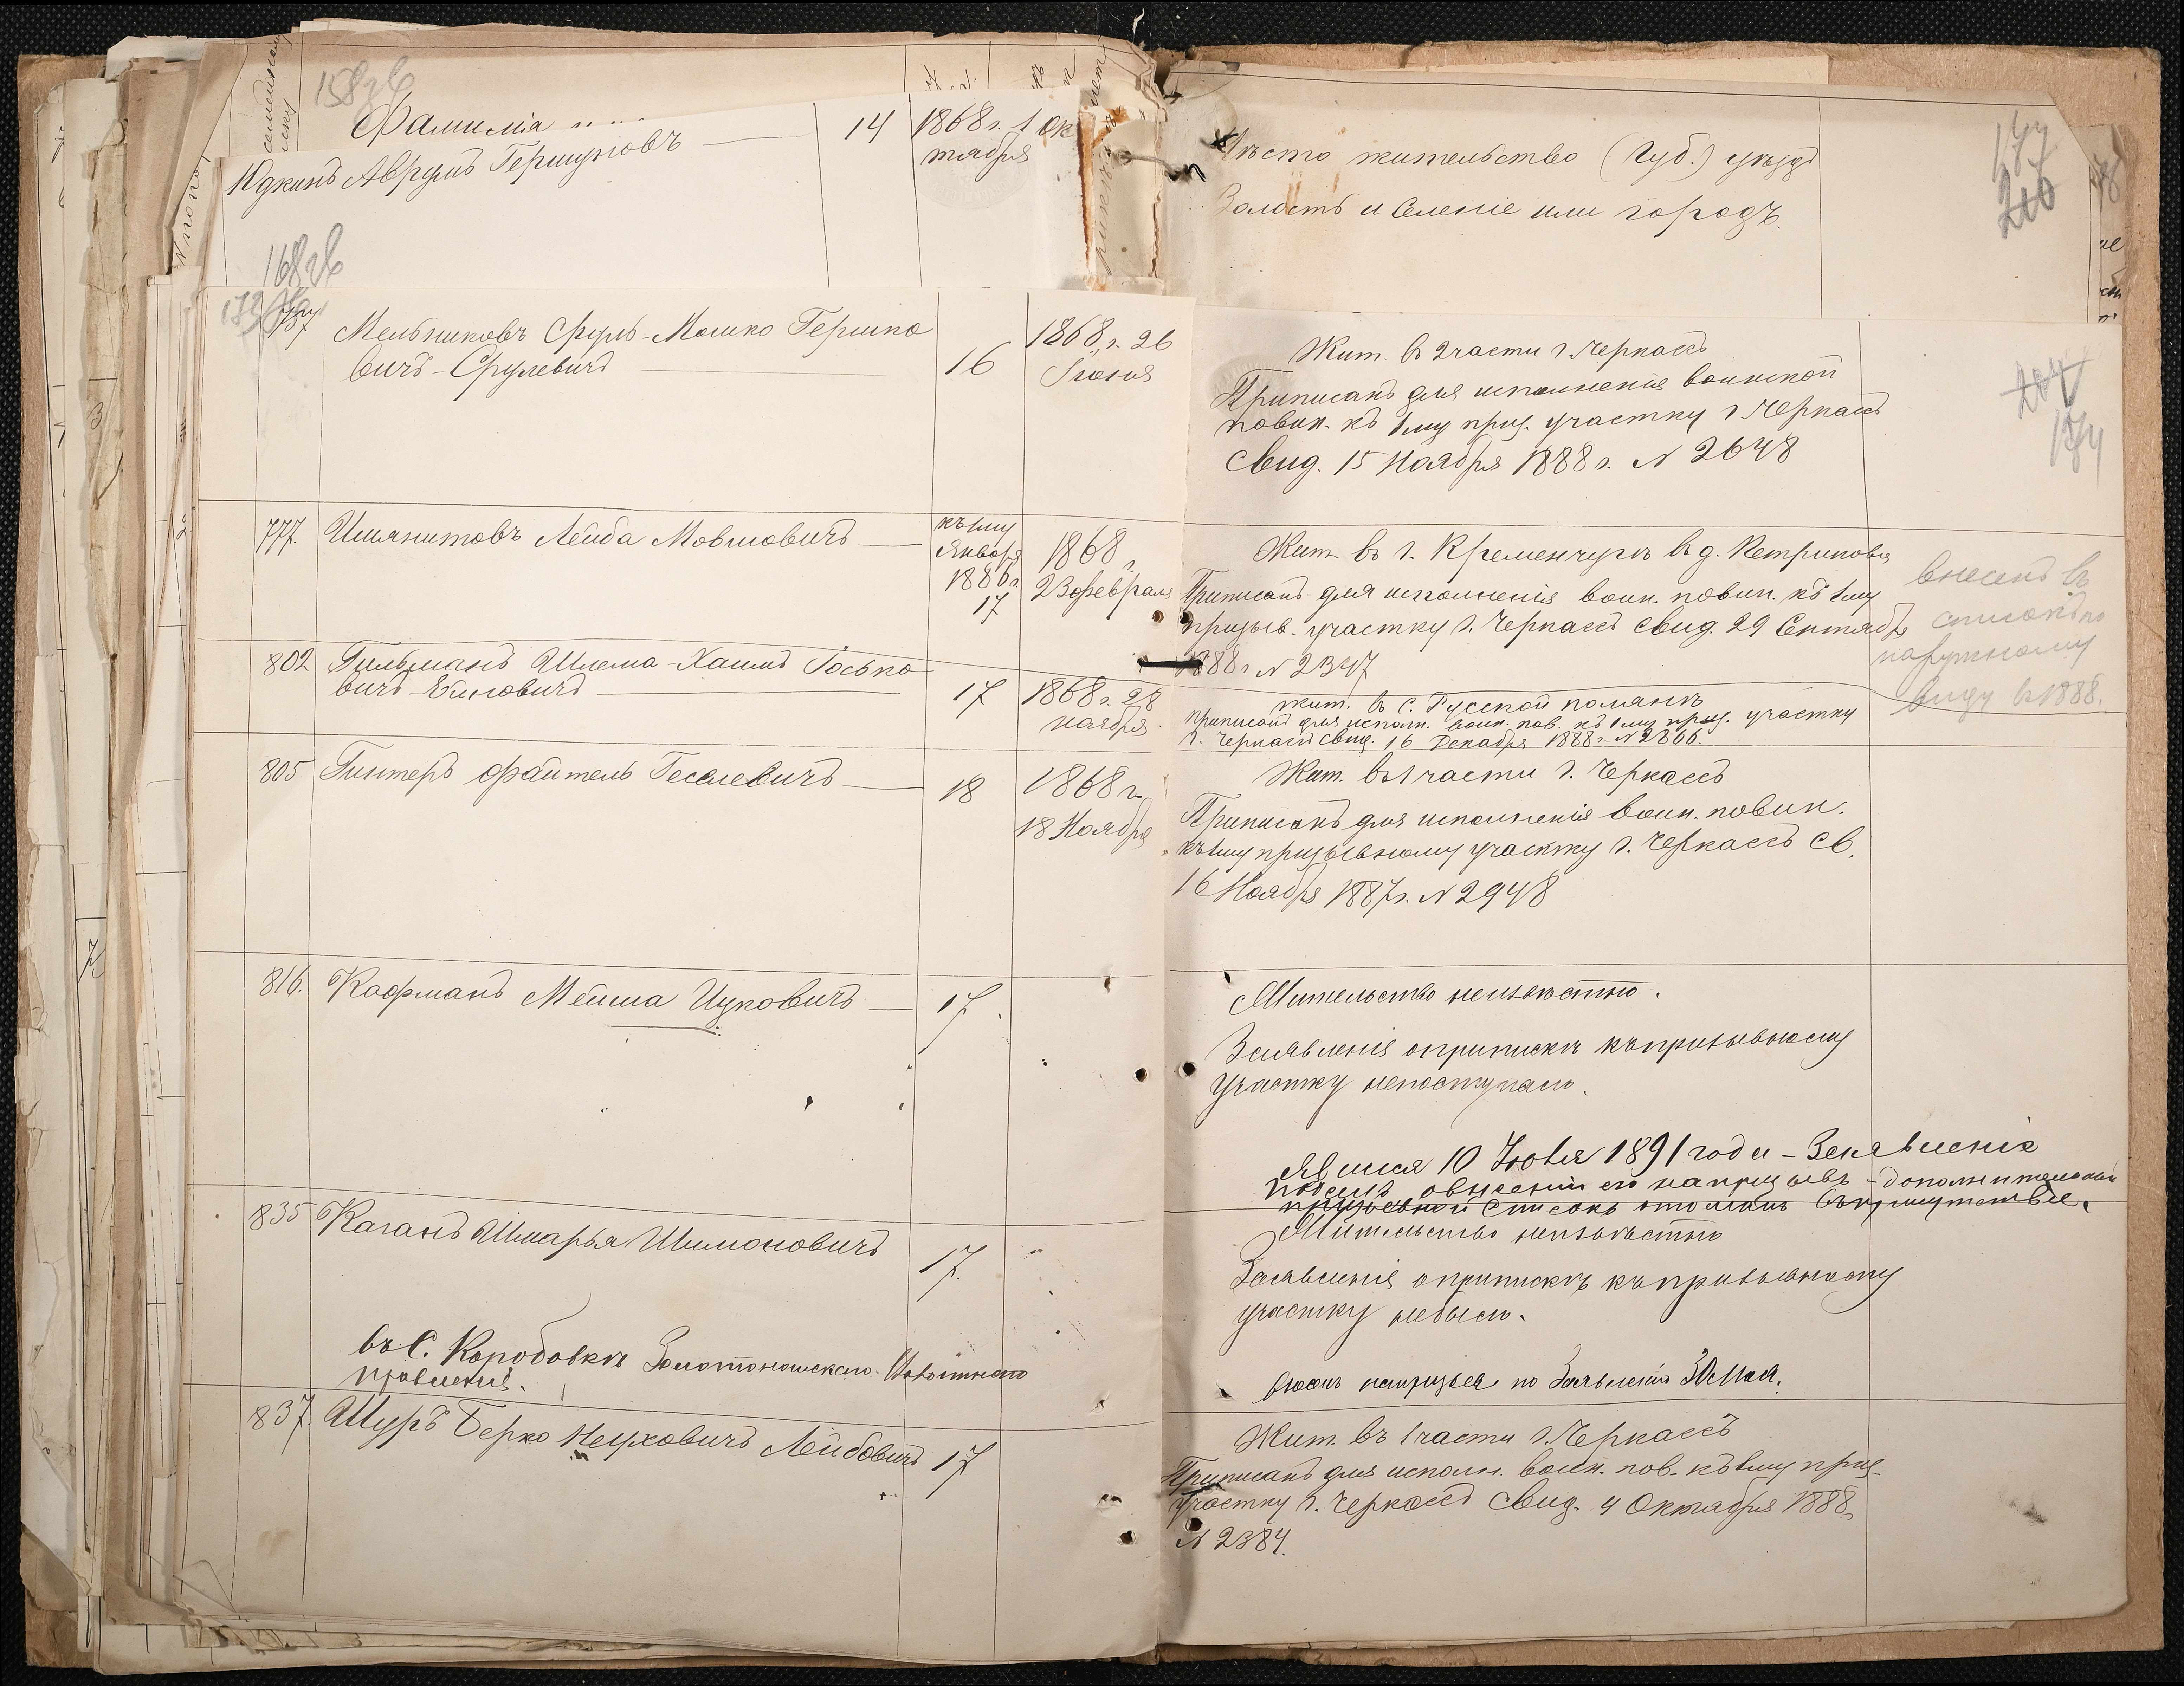 158 об
Фамилія
Юдкинъ Аврумъ Гершуновъ
14
1868 г. 1 Ок
тября
Мѣсто жительство (Губ.) уѣздъ
Волость и Селеніе или городъ.
177
210
168 об
Мельниковъ Сруль-Мошко Гершко
вичъ-Срулевичъ
16
1868 г. 26
Іюня
Жит. в 2 части г. Черкассъ
Приписанъ для исполненія воинской
повин. къ 1му приз. участку г. Черкассъ
Свид. 15 Ноября 1888 г. № 2648
777. Ишянитовъ Лейба Мовшовичъ
къ 1му
Января
1886 г.
17
1868 г.
23 февраля
Жит. въ г. Кременчугѣ в д. Петриковка
Приписанъ для исполненія воин. повин. къ 1му
призыв. участку г. Черкассъ свид. 29 Сентября
1888 г. № 2347
внесенъ въ
списокъ по
наружному
виду в 1888.
802 Гильманъ Шлема-Хаимъ Іосько
вичъ
17
1868 г. 28
ноября
жит. в с. Русской полянѣ
приписанъ для исполн. воин. пов. къ 1му приз. участку
г. Черкассъ свид. 16 Декабря 1888 г. № 2866.
805 Гинтеръ Файтель Геселевичъ
18
1868 г.
18 Ноября
Жит. въ 1 части г. Черкассъ
Приписанъ для исполненія воин. повин.
къ 1му призывному участку г. Черкассъ св.
16 Ноября 1887 г. № 2948
816. Кофманъ Мейша Ицковичъ
17
Жительство неизвѣстно.
Заявленія о припискѣ къ призывному
участку непоступало.
Явился 10 Іюня 1891 года - Заявленіе
подалъ о внесеніи его на призывъ - дополнительный
призывной Списокъ
835 Каганъ Шмарья Шимоновичъ
17.
Жительство неизвѣстно
Заявленія о припискѣ къ призывному
участку небыло.
въ С. Коробовкѣ Золотоношскаго
правленія.
по Заявленію 30 Мая.
837. Шуръ Берко Нухховичъ Лейбовичъ
17
Жит. въ 1 части г. Черкассъ
Приписанъ для исполн. воин. пов. къ 1му приз.
участку г. Черкассъ Свид. 4 Октября 1888
№ 2384.